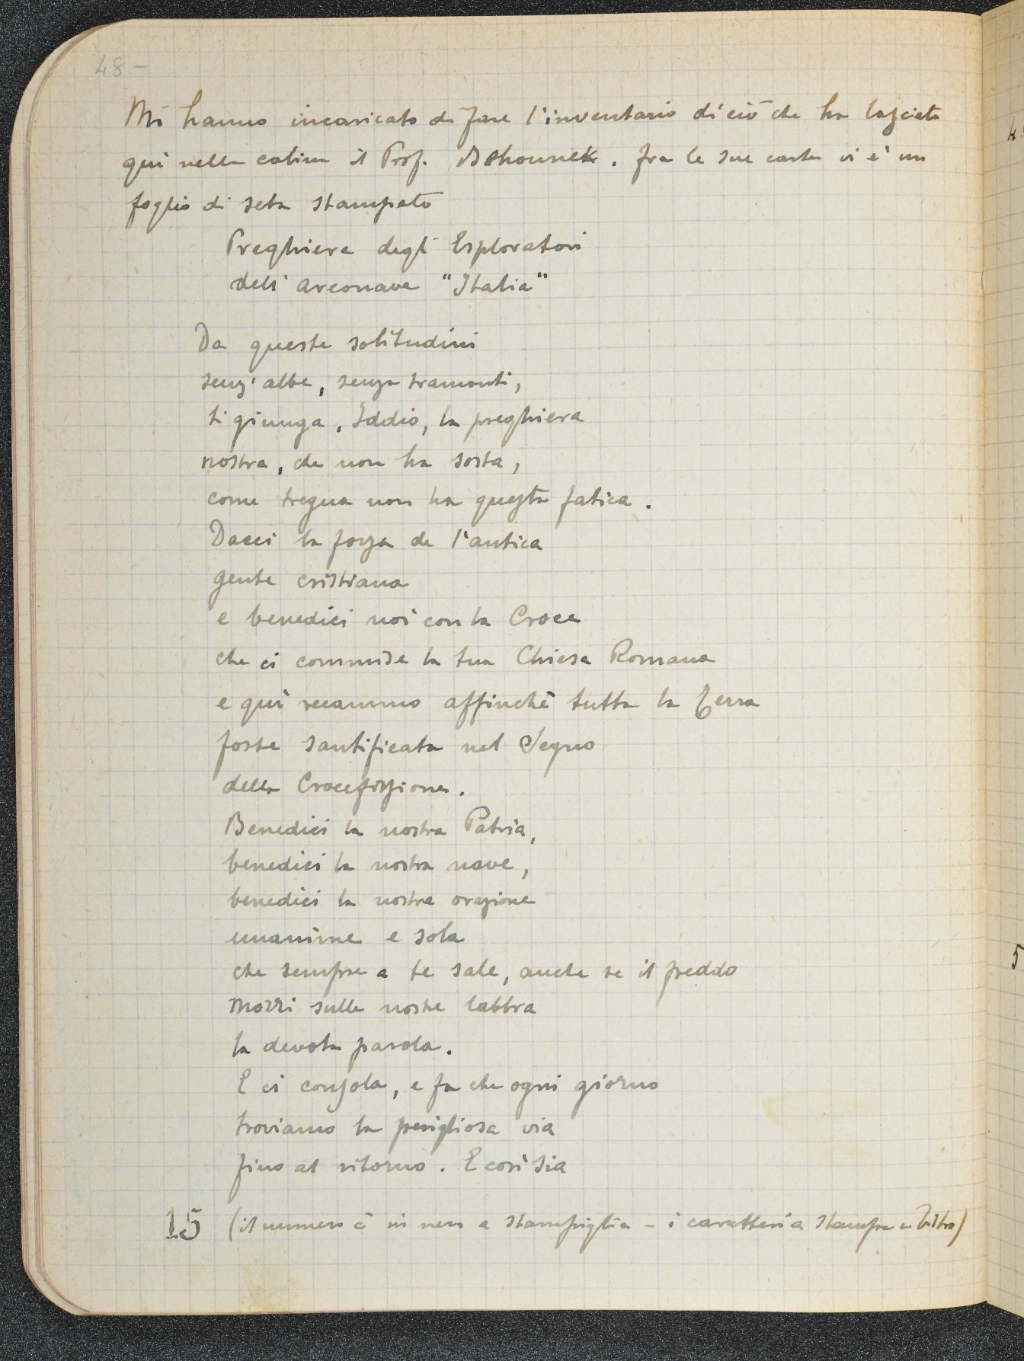 48-
Mi hanno incaricato di fare l'inventario di ciò che ha lasciato
qui nella cabina il Prof. Behounek. fra le sue carte vi è un
foglio di seta stampato
Preghiera degli Esploratori
dell'areonave "Italia"
Da queste solitudini
senz'albe, senza tramonti,
ti giunga, Iddio, la preghiera
nostra, che non ha sosta,
come tregua non ha questa fatica.
Dacci la forza de l'antica
gente cristiana
e benedici noi con la Croce
che ci commise la tua Chiesa Romana
e qui recammo affinchè tutta la Terra
fosse santificata nel Segno
della Crocefissione.
Benedici la nostra Patria,
benedici la nostra nave,
benedici la nostra orazione
unanime e sola
che sempre a te sale, anche se il freddo
morzi sulle nostre labbra
la devota parola.
E ci consola, e fa che ogni giorno
troviamo la perigliosa via
fino al ritorno. E così sia
15 (il numero è in nero a stampiglia - i caratteri a stampa a
5